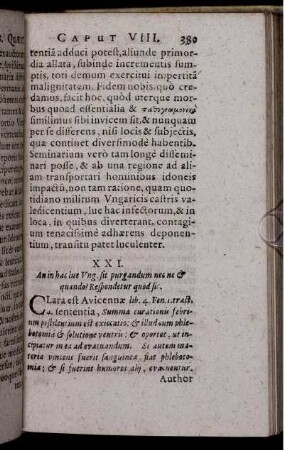 CAPUT VIII. 389
tentiā adduci potest, aliunde primor-
dia allata, subinde incrementis sum-
ptis, toti demum exercitui impertitā
malignitatem. Fidem nobis, quò cre-
damus, facit hoc, quòd uterque mor-
bus quoad essentialia &
simillimus sibi invicem sit, & nunquam
per se differens, nisi locis & subjectis,
qua continet diversimodè habentib.
Seminariam verò tam longè dissemi-
nari posse, & ab una regione ad ali-
am transportari hominibus idoneis
impactū, non tam ratione, quam quo-
tidiano militum Vngaricis castris va-
ledicentium, lue hac infectorum, & in
loca, in quibus diverterant, contagi-
um tenacissimè adhærens deponen-
tium, transitu patet luculenter.
XXI.
An in hac lue Vng. sit purgandum nec ne &
quando? Respondetur quòd sic.
CLara est Avicennæ lib. 4. Fen. 1. tract.
4. sententia, Summa curationis febri-
um pestilentium est exiccatio; & illud cum phle-
botomia & solutione ventris: & oportet, ut in-
cipiatur in ea ad evacuandum. Si autem ma-
teria vincens fuerit sanguinea, fiat phleboto-
mia; & si fuerint humores alij, evacuentur.
Author